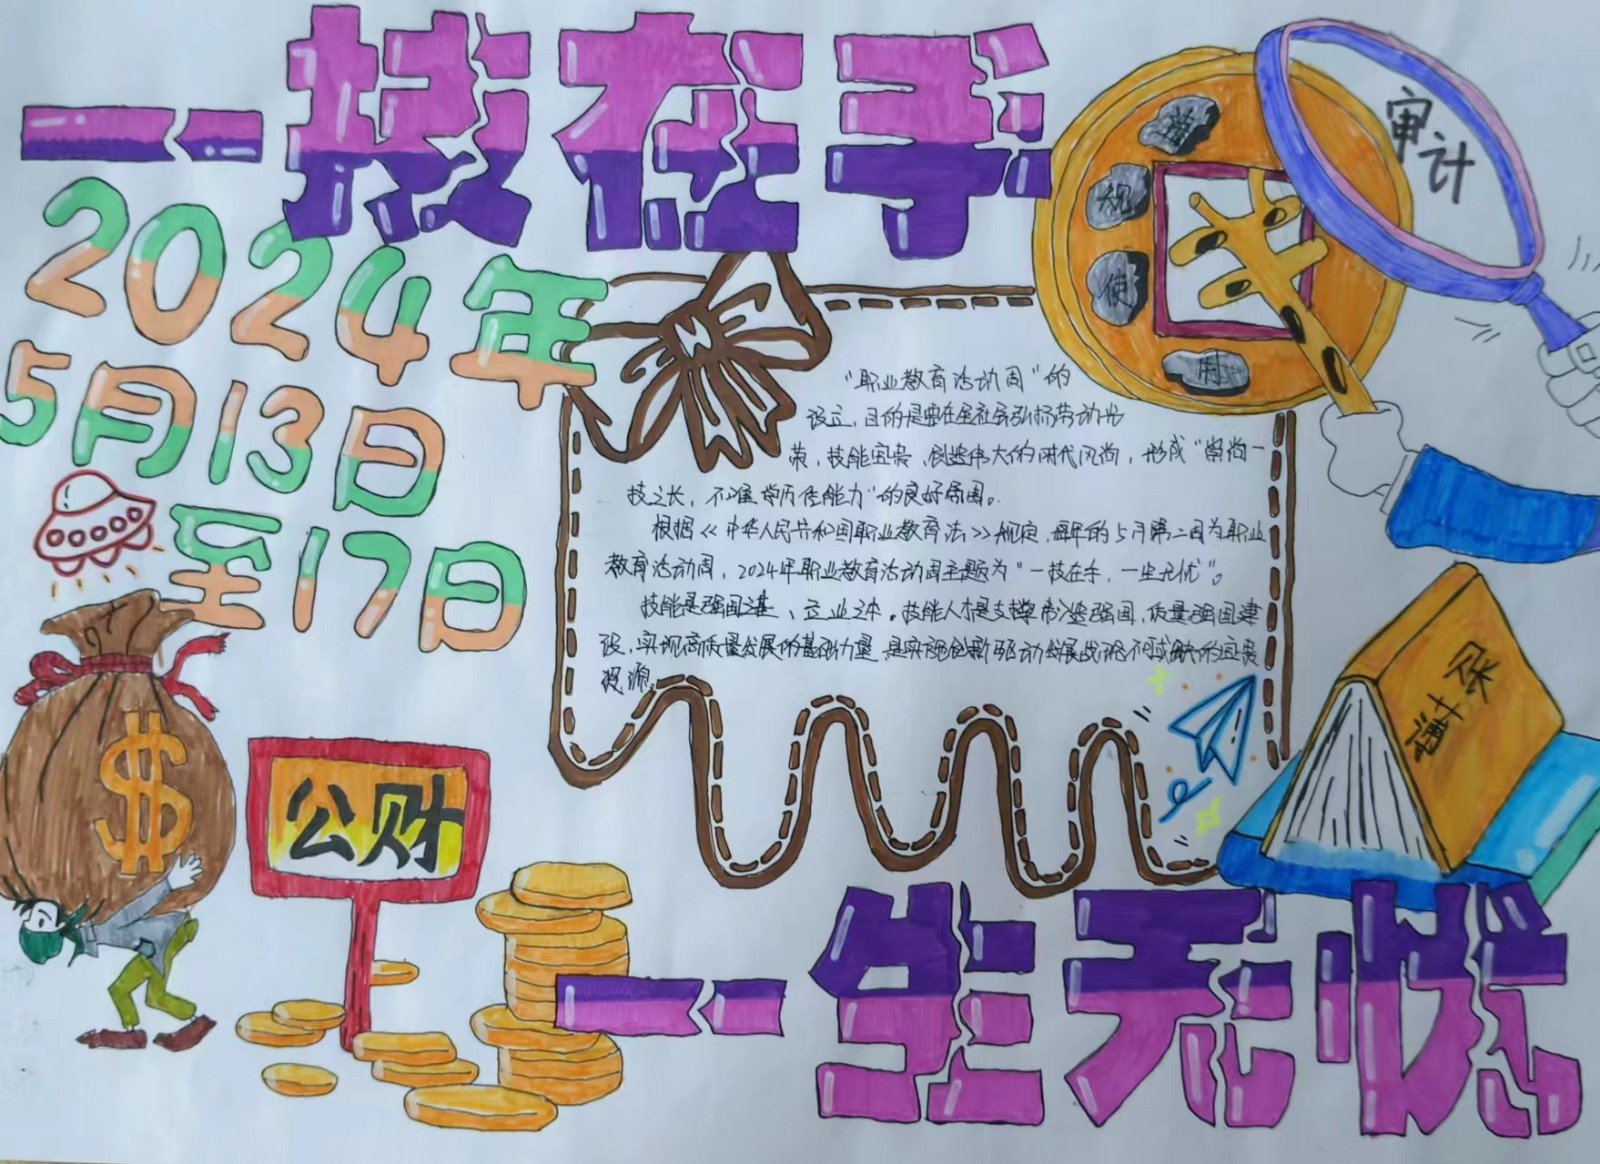 一技在手
2024年
5月13日
至17日
审计
规
使
用
"职业教育活动周"的
设立，目的是要在全社会弘扬劳动光
荣，技能宝贵、创造伟大的时代风尚，形成"崇尚一
技之长，不唯学历凭能力"的良好氛围。
根据<<中华人民共和国职业教育法>>规定，每年的5月第二周为职业
教育活动周，2024年职业教育活动周主题为"一技在手，一生无忧"。
技能是强国之基、立业之本。技能人才是支撑制造强国，质量强国建
设，实现高质量发展的基础力量，是实施创新驱动发展战略不可或缺的宝贵
资源。
账
$
公财
一生无忧